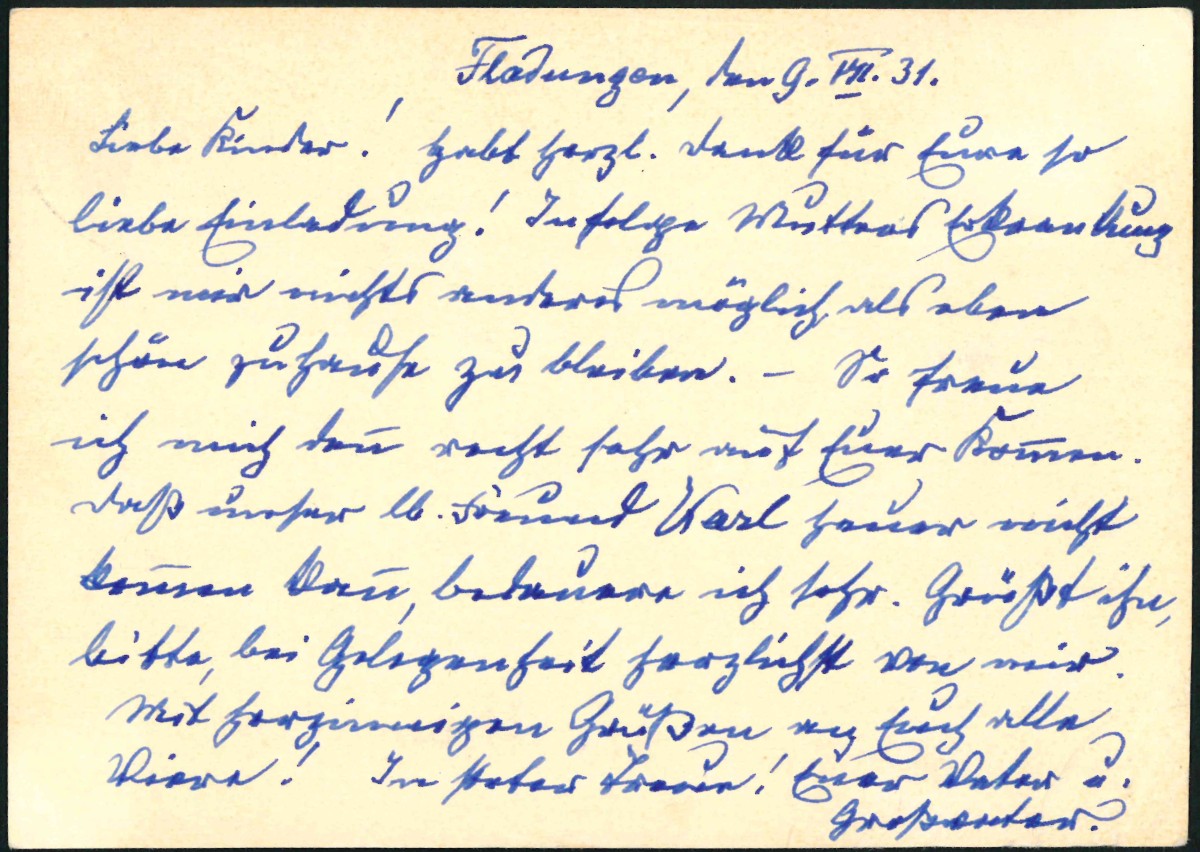 Fladungen, den 9. VII. 31.
Liebe Kinder! Habt herzl. Dank für Eure so
liebe Einladung! Infolge Mutters Erkrankung
ist mir nichts anderes möglich, als eben
schön zuhause zu bleiben. – So freue
ich mich den̄ recht sehr auf Euer Kom̄en.
Daß unser lb. Freund Karl heuer nicht
kom̄en kan̄, bedauere ich sehr. Grüßt ihn,
bitte, bei Gelegenheit herzlichst von mir.
Mit herzinnigen Grüßen an Euch alle
Viere! In steter Treue! Euer Vater u.
Großvater.